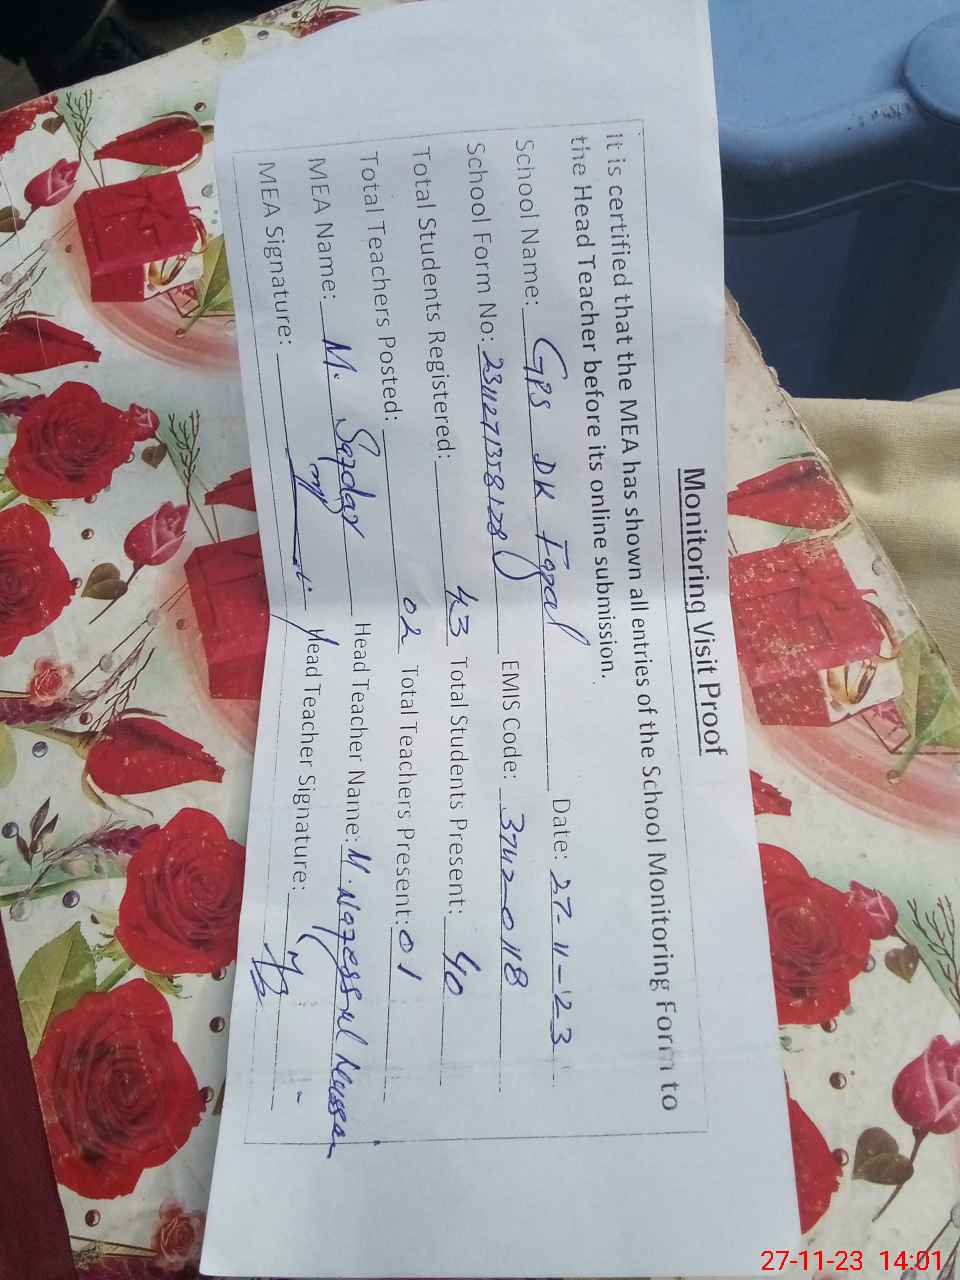 Monitoring Visit Proof
It is certified that the MEA has shown all entries of the School Monitoring Form to
the Head Teacher before its online submission.
School Name: GPS DK Fazal Date: 27-11-23
School Form No: EMIS Code: 37420118
Total Students Registered: 43 Total Students Present: 40
Total Teachers Posted: 02 Total Teachers Present: 01
MEA Name: M. Sardar Head Teacher Name: M.
MEA Signature: Head Teacher Signature:
27-11-23 14:01